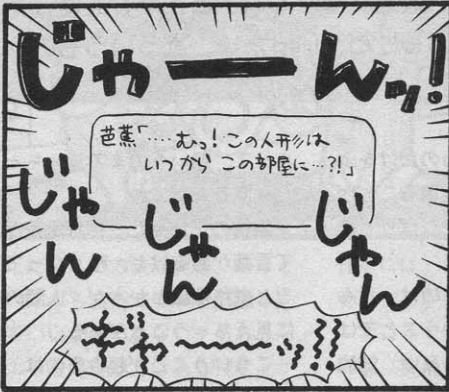 じゃーんッ!
芭蕉「‥‥むっ!この人形は
いつから この部屋に…?!」
じゃん
じゃん
じゃん
キャーーー!!